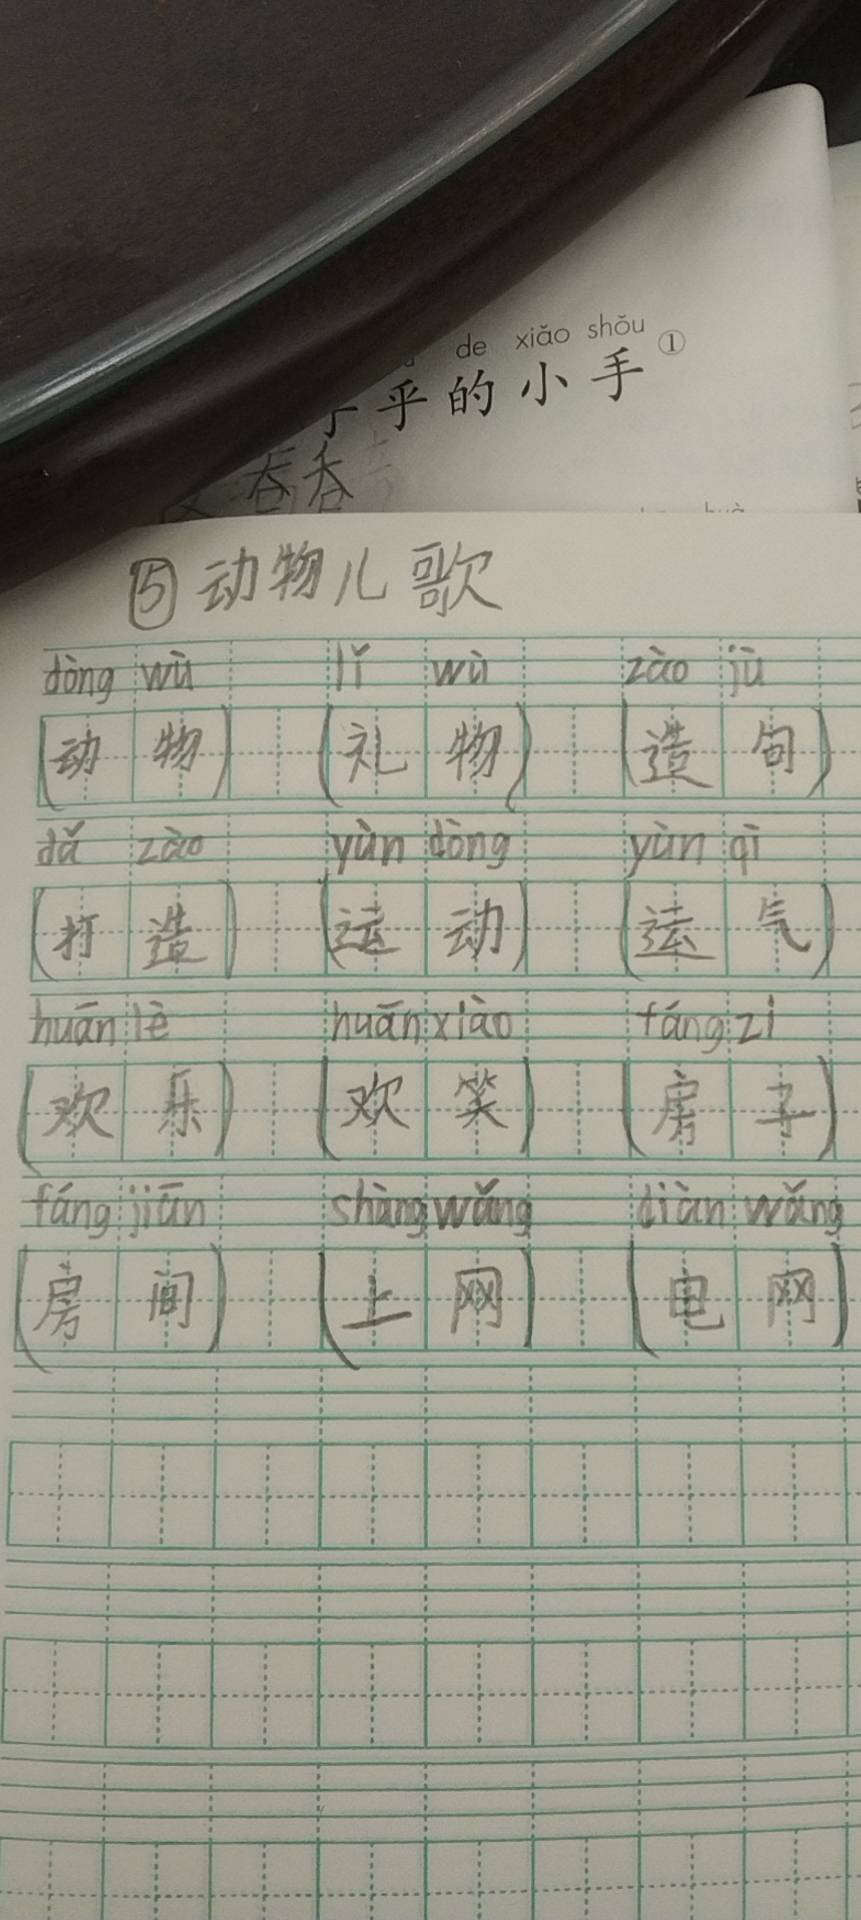 de xiǎo shǒu
乎的小手①
吞吞
⑤动物儿歌
dòng wù lǐ wù zào jù
(动物) (礼物) (造句)
dǎ zào yùn dòng yùn qì
(打造) (运动) (运气)
huān lè huān xiào fáng zi
(欢乐) (欢笑) (房子)
fáng jiān shàng wǎng diàn wǎng
(房间) (上网) (电网)